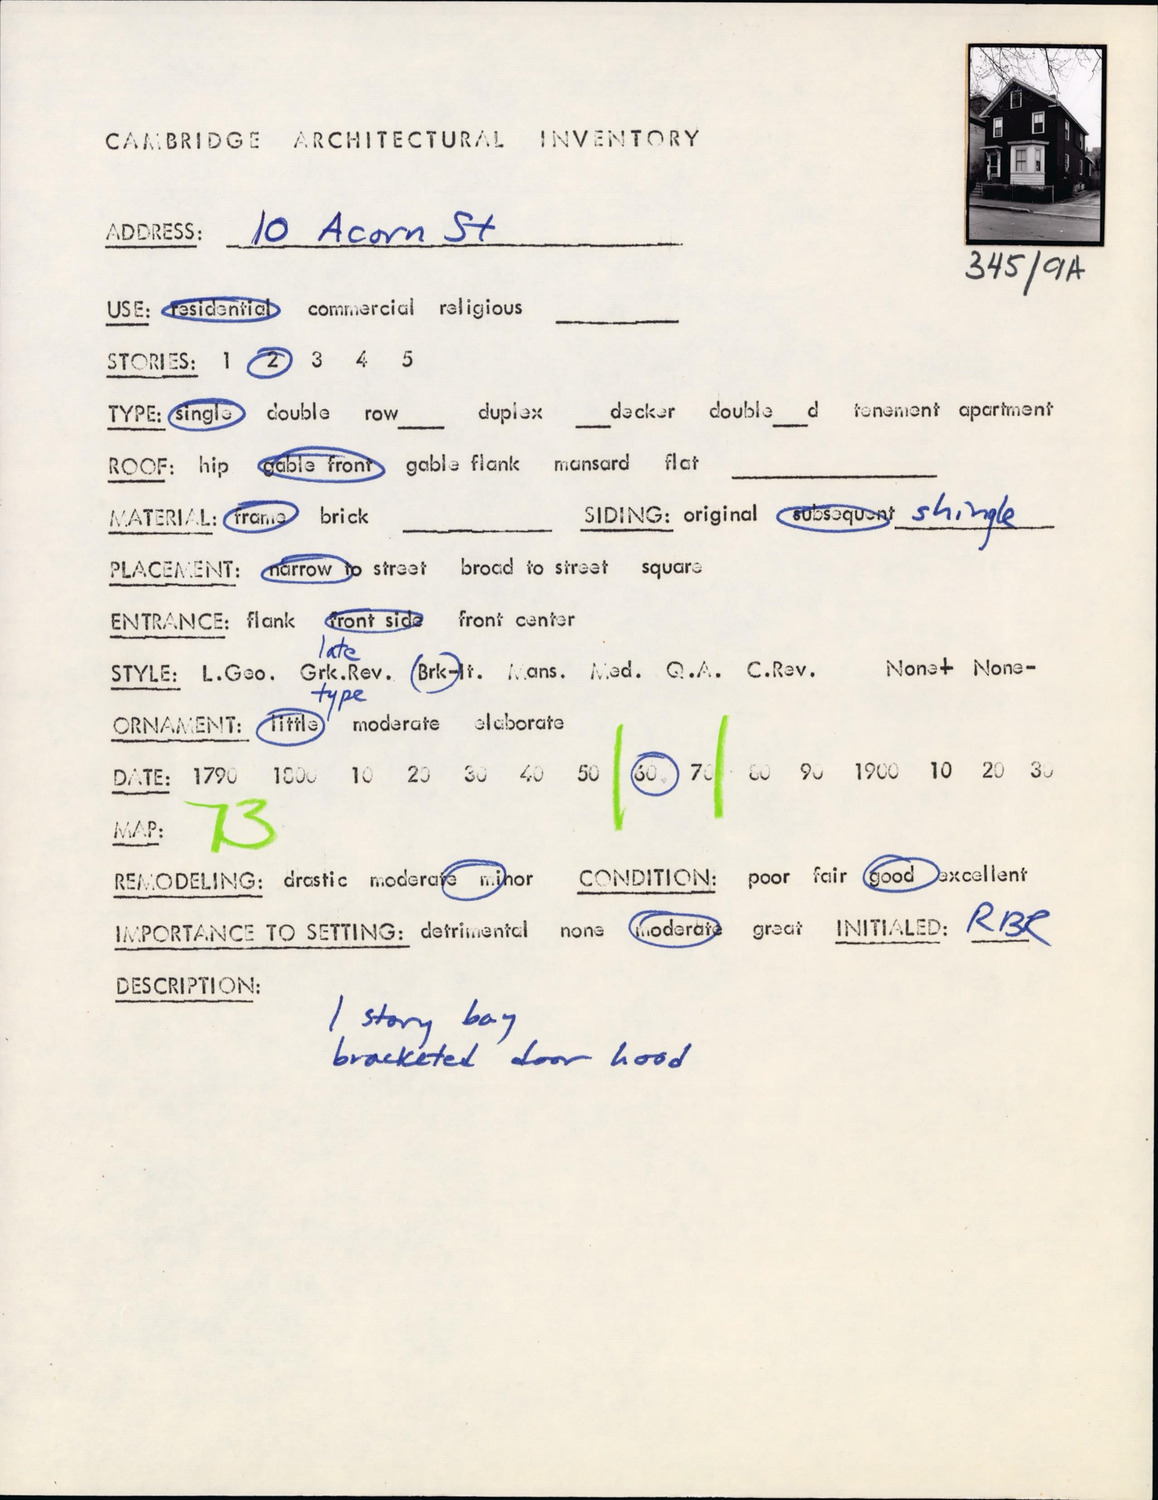 CAMBRIDGE ARCHITECTURAL INVENTORY
345/9A
ADDRESS: 10 Acorn St
USE: residential commercial religious
STORIES: 1 2 3 4 5
TYPE: single double row___ duplex ___decker double___d tenement apartment
ROOF: hip gable front gable flank mansard flat
MATERIAL: frame brick SIDING: original subsequent shingle
PLACEMENT: narrow to street broad to street square
ENTRANCE: flank front side front center
late
STYLE: L.Geo. Grk.Rev. (Brk-)It. Mans. Med. Q.A. C.Rev. None+ None-
type
ORNAMENT: little moderate elaborate
DATE: 1790 1800 10 20 30 40 50 60 70 80 90 1900 10 20 30
MAP: 73
REMODELING: drastic moderate minor CONDITION: poor fair good excellent
IMPORTANCE TO SETTING: detrimental none moderate great INITIALED: RBR
DESCRIPTION:
1 story bay
bracketed door hood